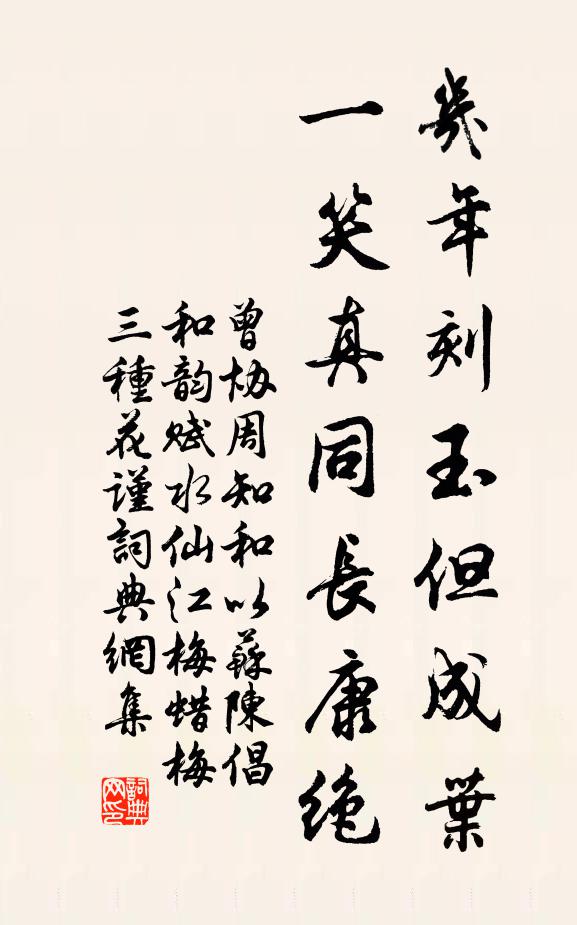 幾年刻玉但成葉
一笑真同長康絶
曾协周知和以蘇陳倡
和韵赋水仙江梅蜡梅
三種花谨詞典網集
詞典
网印